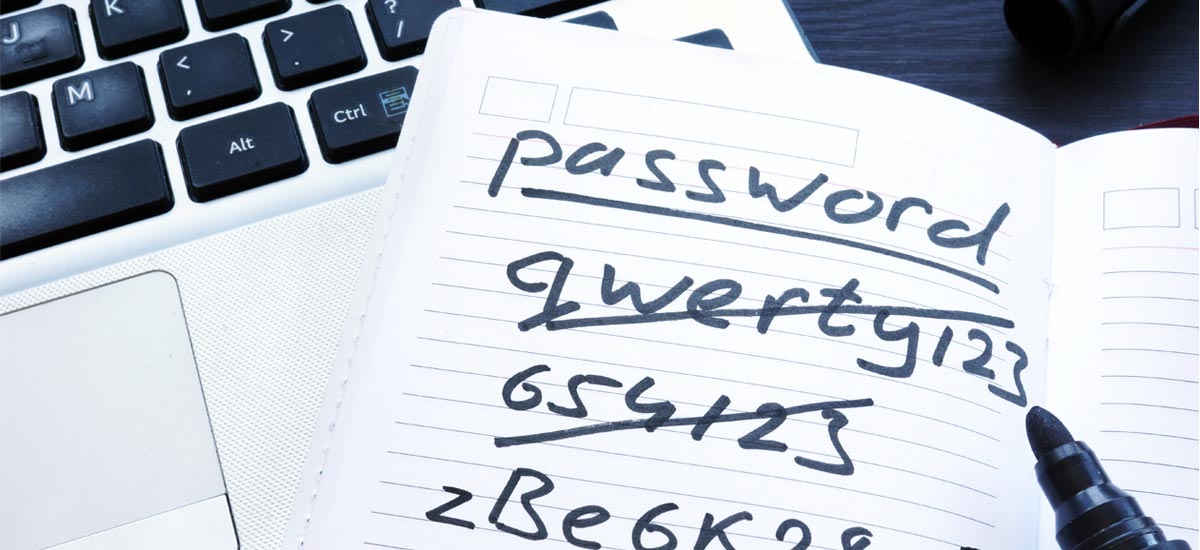 J K ? /
M < , > . Alt Ctrl
password
qwerty123
654123
zBe6K28